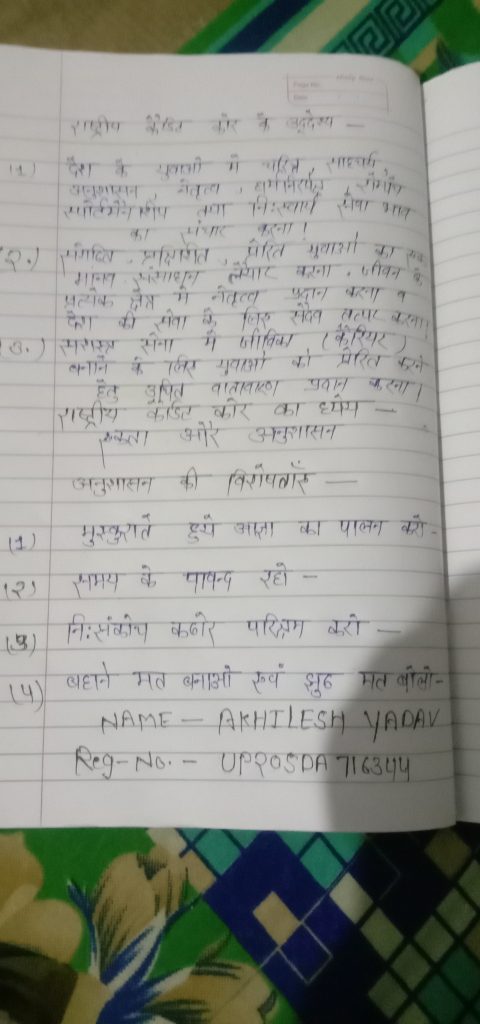 राष्ट्रीय कैडेट कोर के उद्देश्य —
(1) देश के युवाओं में चरित्र, साहचर्य
अनुशासन, नेतृत्व, धर्मनिरपेक्ष, रोमांच
स्पोर्टमैनशीप तथा निःस्वार्थ सेवा भाव
का संचार करना।
(2.) संगठित, प्रशिक्षित, प्रेरित युवाओं का एक
मानव संसाधन तैयार करना, जीवन के
प्रत्येक क्षेत्र में नेतृत्व प्रदान करना व
देश की सेवा के लिए सदैव तत्पर करना।
(3.) सशस्त्र सेना में जीविका (कैरियर)
बनाने के लिए युवाओं को प्रेरित करने
हेतु उचित वातावरण प्रदान करना।
राष्ट्रीय कैडेट कोर का ध्येय —
एकता और अनुशासन
अनुशासन की विशेषताएँ —
(1) मुस्कुराते हुये आज्ञा का पालन करो -
(2) समय के पाबन्द रहो -
(3) निःसंकोच कठोर परिश्रम करो —
(4) बहाने मत बनाओ एवं झुठ मत बोलो -
NAME — AKHILESH YADAV
Reg-No. - UP20SDA 716344